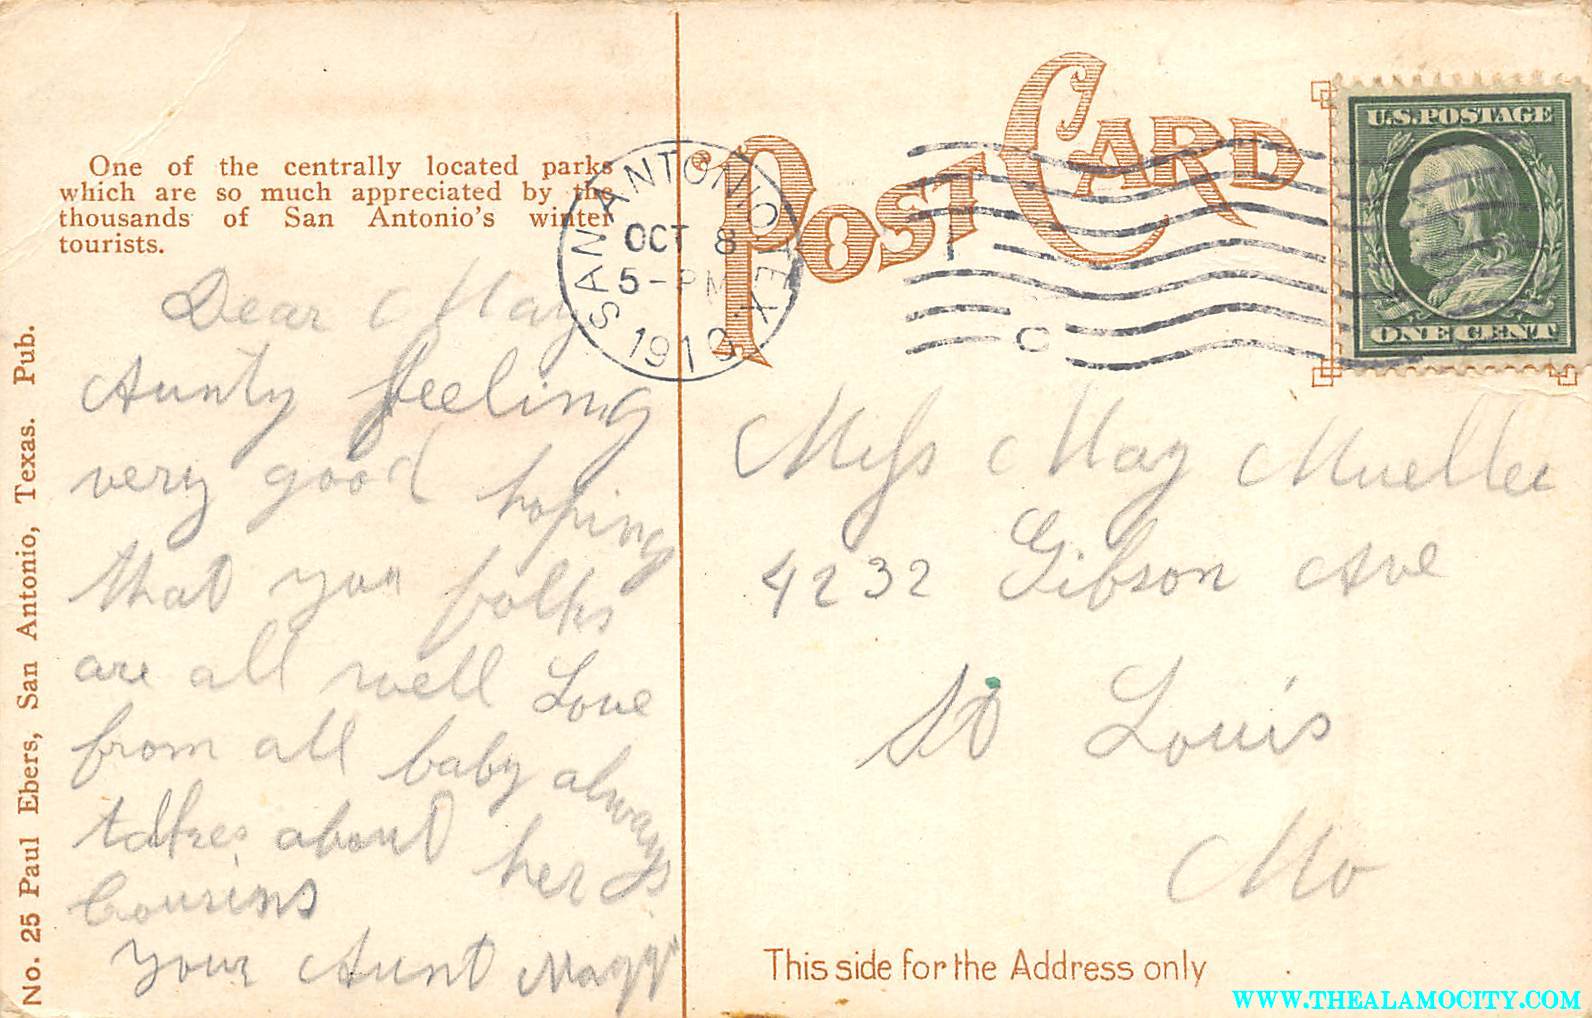 One of the centrally located parks
which are so much appreciated by the
thousands of San Antonio's winter
tourists.
Dear May
Aunty feeling
very good hoping
that you folks
are all well Love
from all baby always
talkes about her
Cousins
Your Aunt Magg
No. 25 Paul Ebers, San Antonio, Texas. Pub.
POST CARD
SAN ANTONIO, TEX.
OCT 8
5-PM
1910
U.S. POSTAGE
ONE CENT
Miss May Mueller
4232 Gibson Ave
St Louis
Mo
This side for the Address only
WWW.THEALAMOCITY.COM